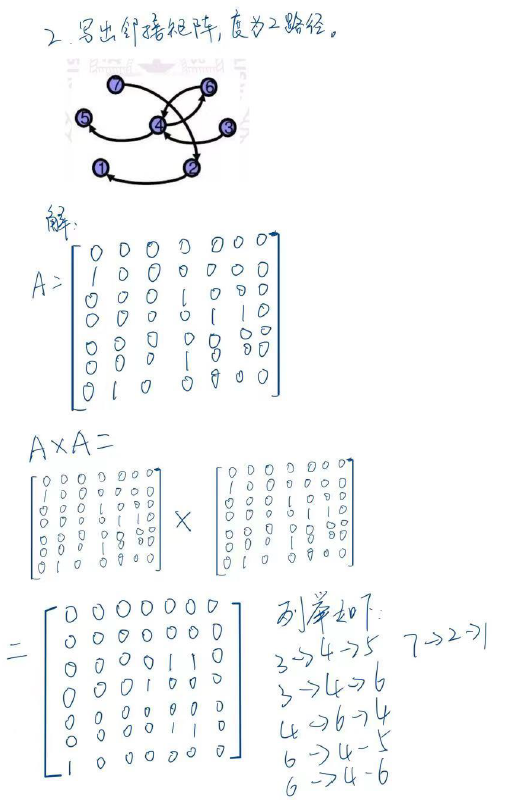 2. 写出邻接矩阵,度为2路径。
7
6
5
4
3
1
2
解:
A=
0 0 0 0 0 0 0
1 0 0 0 0 0 0
0 0 0 1 0 0 0
0 0 0 0 1 1 0
0 0 0 0 0 0 0
0 0 0 1 0 0 0
0 1 0 0 0 0 0
A×A=
0 0 0 0 0 0 0
1 0 0 0 0 0 0
0 0 0 1 0 0 0
0 0 0 0 1 1 0
0 0 0 0 0 0 0
0 0 0 1 0 0 0
0 1 0 0 0 0 0
×
0 0 0 0 0 0 0
1 0 0 0 0 0 0
0 0 0 1 0 0 0
0 0 0 0 1 1 0
0 0 0 0 0 0 0
0 0 0 1 0 0 0
0 1 0 0 0 0 0
=
0 0 0 0 0 0 0
0 0 0 0 0 0 0
0 0 0 0 1 1 0
0 0 0 1 0 0 0
0 0 0 0 0 0 0
0 0 0 0 1 1 0
1 0 0 0 0 0 0
列举如下:
3→4→5 7→2→1
3→4→6
4→6→4
6→4-5
6→4-6